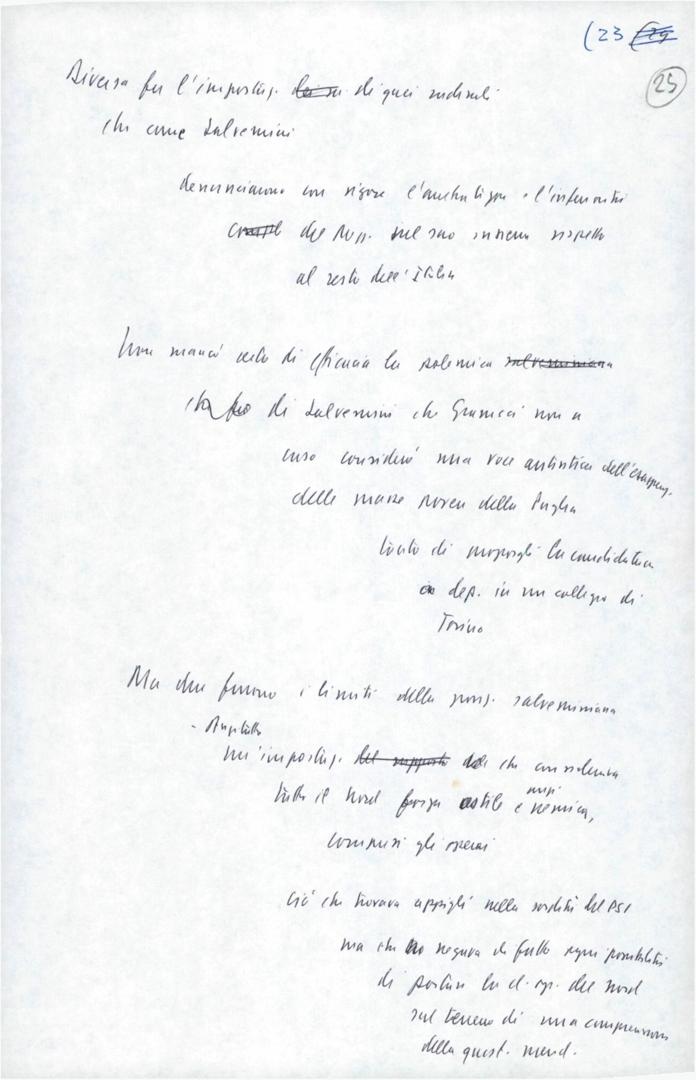 (23
25
Diversa fu l'impostaz. di quei
che come Salvemini
denunciarono con rigore l'arretratezza e l'inferiorità
del Mezz. nel suo insieme rispetto
al resto dell'Italia
Non mancò certo di efficacia la polemica salveminiana
di Salvemini che Gramsci non a
caso considerò una voce autentica
delle masse povere della Puglia
tanto di proporgli la candidatura
a dep. in un collegio di
Torino
Ma due furono i limiti della posiz. salveminiana
- Anzitutto
un'impostaz. che considerava
tutto il Nord forza ostile e nemica,
compresi gli operai
Ciò che trovava appigli nella sordità del PSI
ma che negava di fatto ogni possibilità
di portare la cl. op. del Nord
sul terreno di una comprensione
della quest. merid.